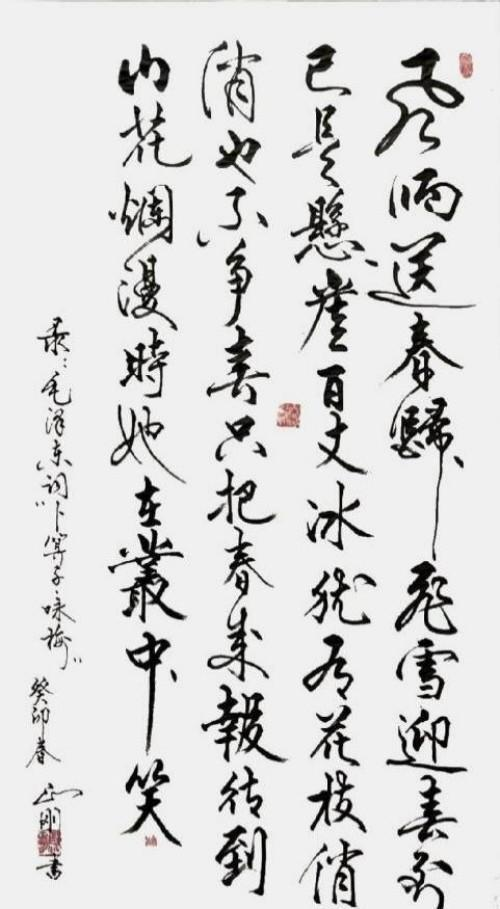 风雨送春歸飛雪迎春到
已是懸崖百丈冰猶有花枝俏
俏也不争春只把春来報待到
山花爛漫時她在叢中笑
录：毛泽东词“卜算子·咏梅”
癸卯春 刚书